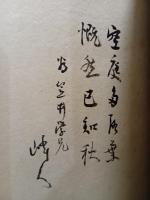 空庭多落葉
慨然已知秋
為笠井学兄